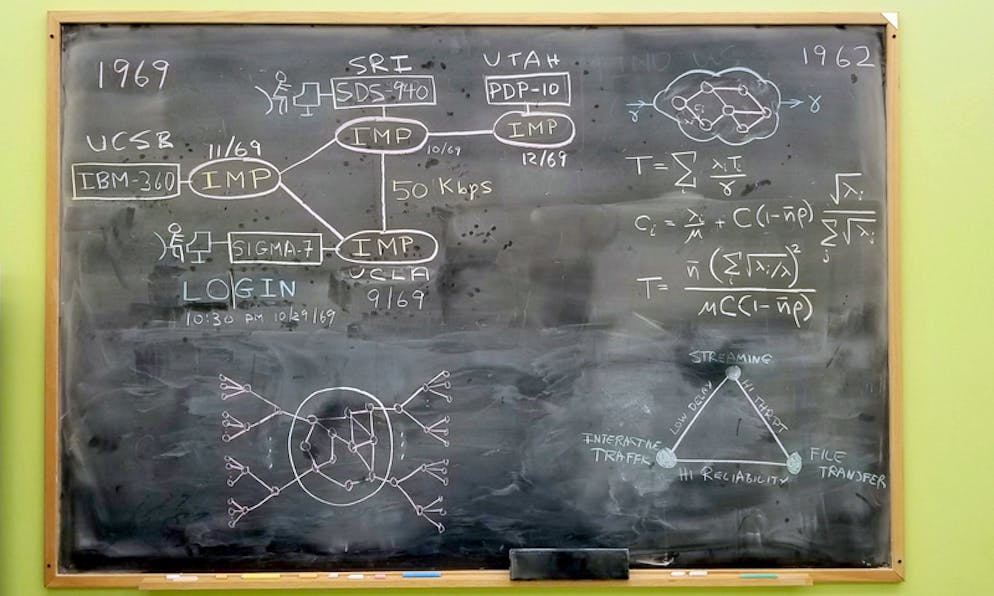 1969
SRI
SDS-940
UTAH
PDP-10
IMP
10/69
IMP
12/69
UCSB
11/69
IBM-360
IMP
50 Kbps
SIGMA-7
IMP
UCLA
9/69
LO|GIN
10:30 PM 10/29/69
1962
γ
γ
T = Σ_i λ_i T_i / γ
C_i = λ_i / μ + C(1 - n̄ρ) √λ_i / Σ_j √λ_j
T = n̄ (Σ_i √λ_i/λ)² / μC(1 - n̄ρ)
STREAMING
LOW DELAY
HI THRPT
INTERACTIVE
TRAFFIC
HI RELIABILITY
FILE
TRANSFER